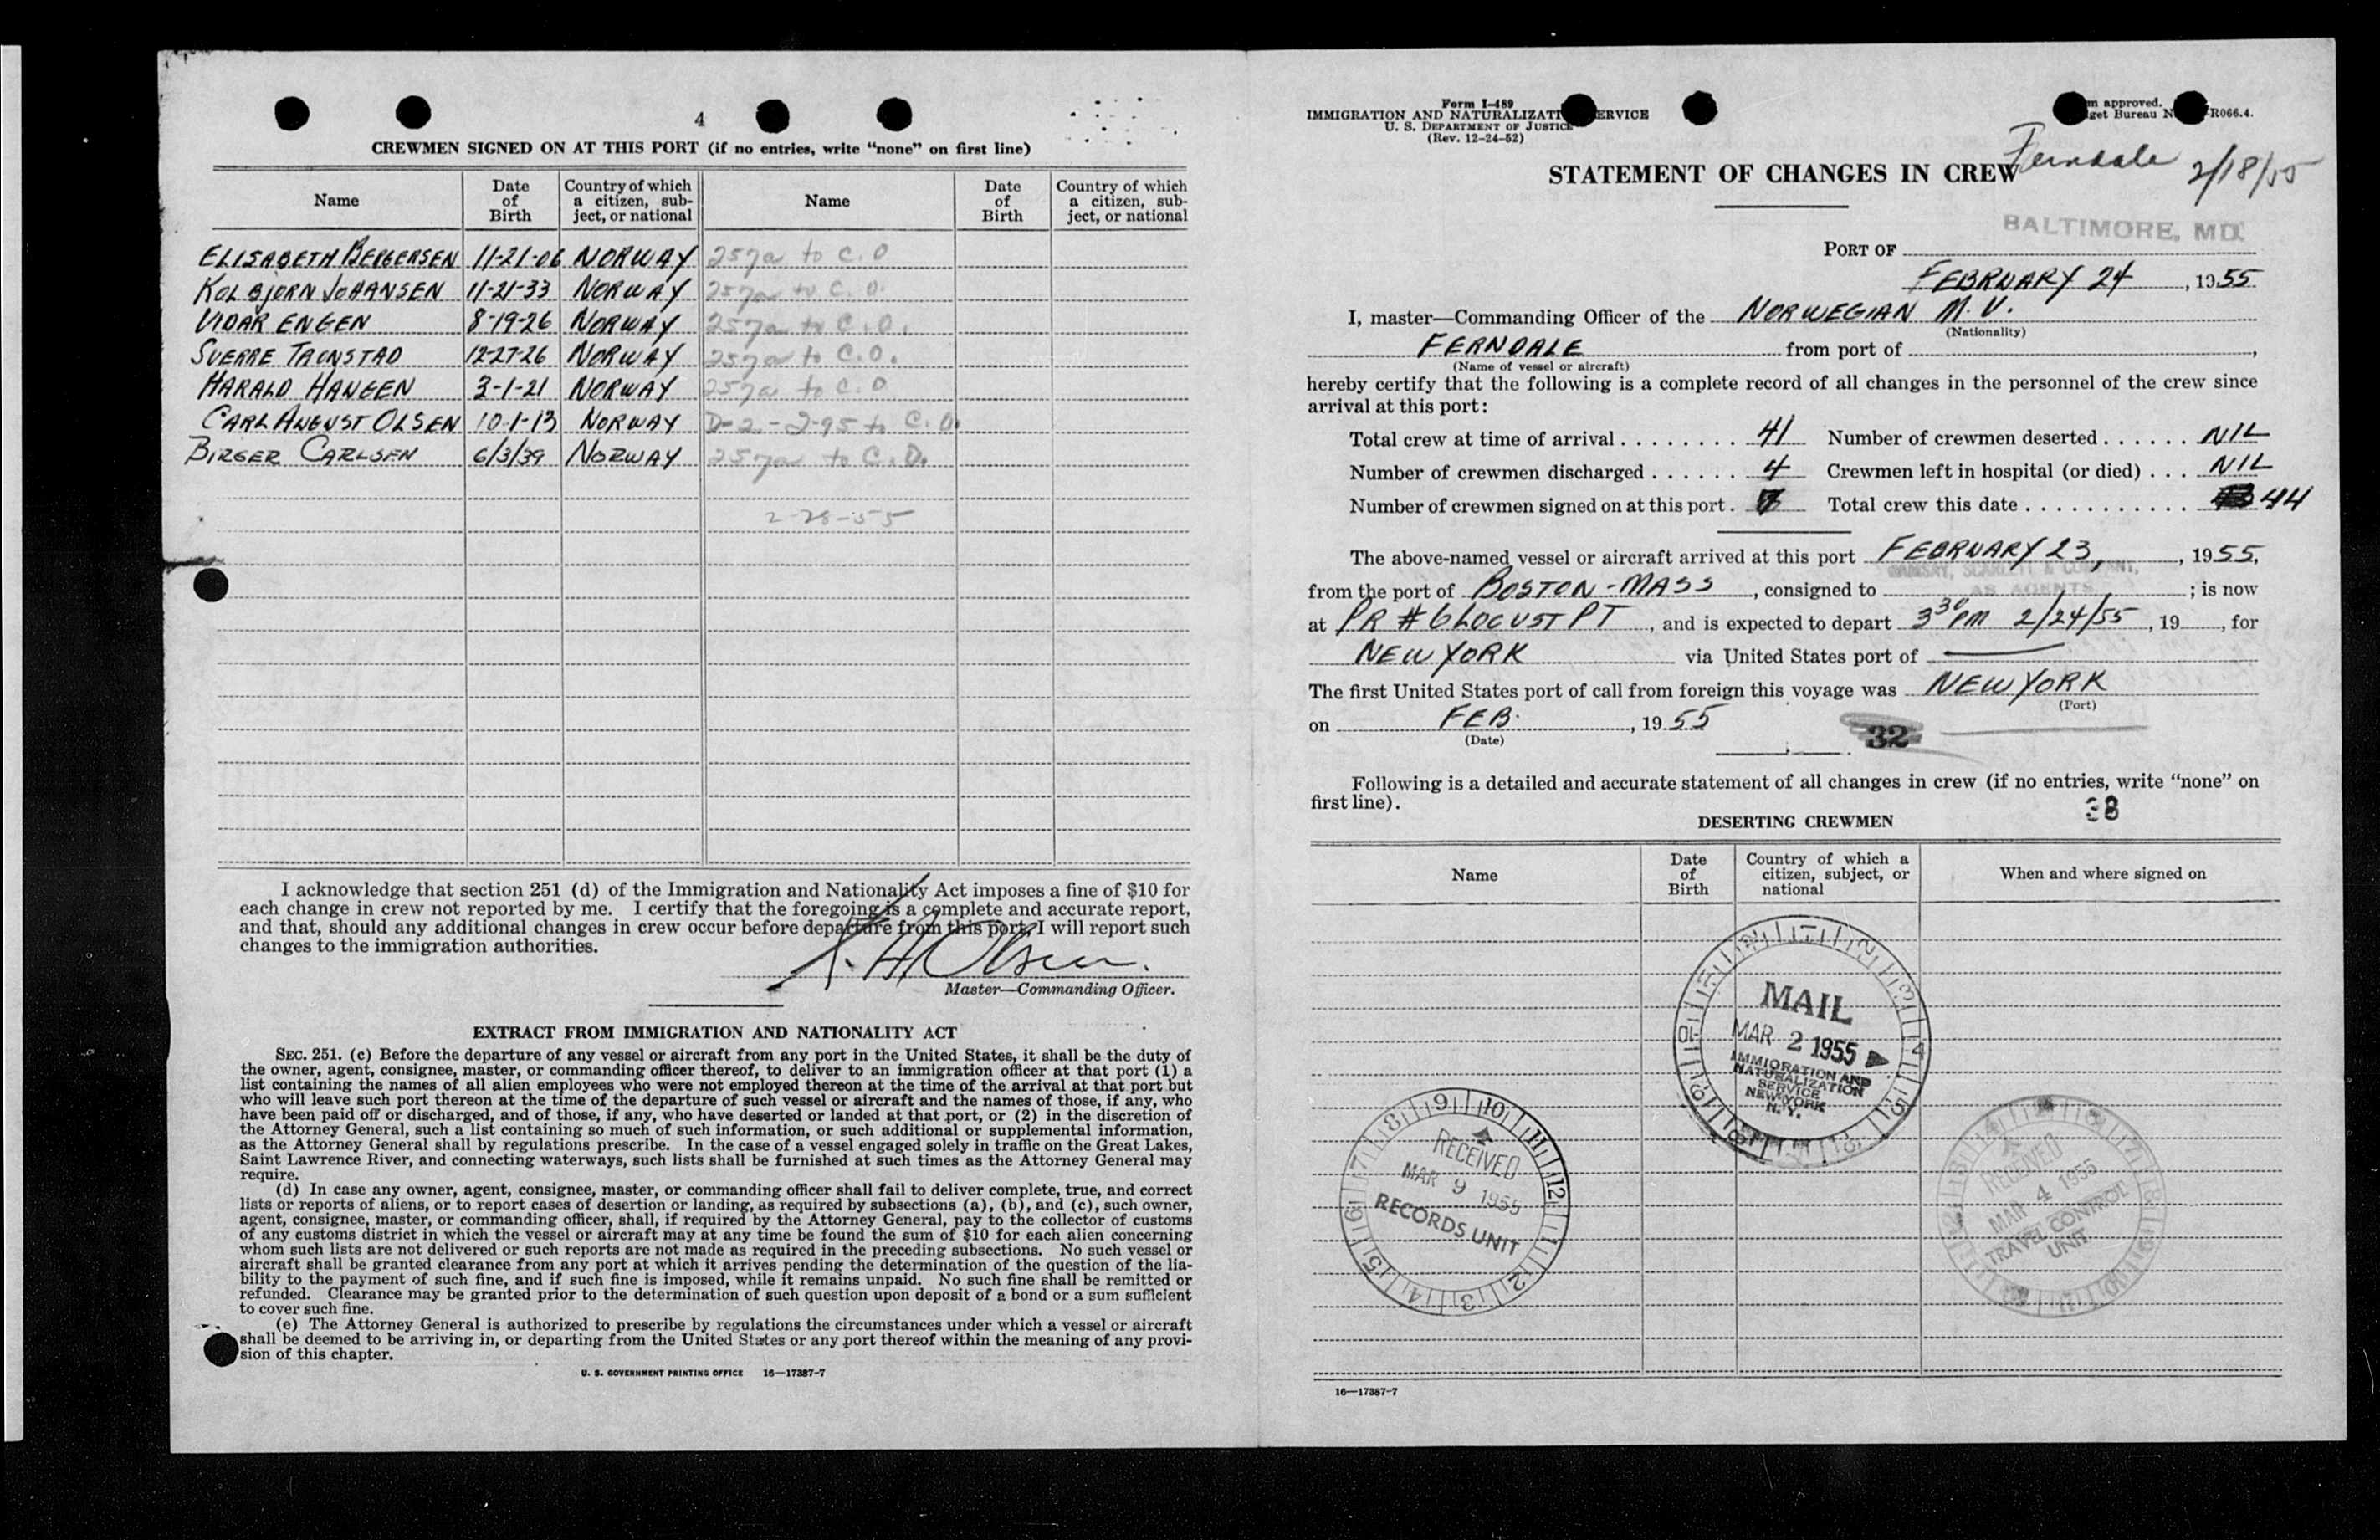 4
CREWMEN SIGNED ON AT THIS PORT (if no entries, write “none” on first line)
Name Date of Birth Country of which a citizen, subject, or national Name Date of Birth Country of which a citizen, subject, or national
ELISABETH BERGERSEN 11-21-06 NORWAY 257a to C.O
KOLBJORN JOHANSEN 11-21-33 NORWAY 257a to C.O.
VIDAR ENGEN 8-19-26 NORWAY 257a to C.O.
SVERRE TRONSTAD 12-27-26 NORWAY 257a to C.O.
HARALD HANGEN 3-1-21 NORWAY 257a to C.O
CARL AUGUST OLSEN 10-1-13 NORWAY D-2-2-95 to C.O.
BIRGER CARLSEN 6/3/39 NORWAY 257a to C.O.
2-28-55
I acknowledge that section 251 (d) of the Immigration and Nationality Act imposes a fine of $10 for
each change in crew not reported by me. I certify that the foregoing is a complete and accurate report,
and that, should any additional changes in crew occur before departure from this port, I will report such
changes to the immigration authorities.
Olsen.
Master—Commanding Officer.
EXTRACT FROM IMMIGRATION AND NATIONALITY ACT
SEC. 251. (c) Before the departure of any vessel or aircraft from any port in the United States, it shall be the duty of
the owner, agent, consignee, master, or commanding officer thereof, to deliver to an immigration officer at that port (1) a
list containing the names of all alien employees who were not employed thereon at the time of the arrival at that port but
who will leave such port thereon at the time of the departure of such vessel or aircraft and the names of those, if any, who
have been paid off or discharged, and of those, if any, who have deserted or landed at that port, or (2) in the discretion of
the Attorney General, such a list containing so much of such information, or such additional or supplemental information,
as the Attorney General shall by regulations prescribe. In the case of a vessel engaged solely in traffic on the Great Lakes,
Saint Lawrence River, and connecting waterways, such lists shall be furnished at such times as the Attorney General may
require.
(d) In case any owner, agent, consignee, master, or commanding officer shall fail to deliver complete, true, and correct
lists or reports of aliens, or to report cases of desertion or landing, as required by subsections (a), (b), and (c), such owner,
agent, consignee, master, or commanding officer, shall, if required by the Attorney General, pay to the collector of customs
of any customs district in which the vessel or aircraft may at any time be found the sum of $10 for each alien concerning
whom such lists are not delivered or such reports are not made as required in the preceding subsections. No such vessel or
aircraft shall be granted clearance from any port at which it arrives pending the determination of the question of the lia-
bility to the payment of such fine, and if such fine is imposed, while it remains unpaid. No such fine shall be remitted or
refunded. Clearance may be granted prior to the determination of such question upon deposit of a bond or a sum sufficient
to cover such fine.
(e) The Attorney General is authorized to prescribe by regulations the circumstances under which a vessel or aircraft
shall be deemed to be arriving in, or departing from the United States or any port thereof within the meaning of any provi-
sion of this chapter.
U. S. GOVERNMENT PRINTING OFFICE 16—17387-7
Form I-489
IMMIGRATION AND NATURALIZATI ERVICE
U. S. DEPARTMENT OF JUSTICE
(Rev. 12-24-52)
m approved.
get Bureau N R066.4.
Ferndale 2/18/55
STATEMENT OF CHANGES IN CREW
BALTIMORE, MD.
PORT OF
FEBRUARY 24, 1955
I, master—Commanding Officer of the NORWEGIAN M.V.
(Nationality)
FERNDALE from port of ,
(Name of vessel or aircraft)
hereby certify that the following is a complete record of all changes in the personnel of the crew since
arrival at this port:
Total crew at time of arrival . . . . . . . . 41 Number of crewmen deserted . . . . . . NIL
Number of crewmen discharged . . . . . . 4 Crewmen left in hospital (or died) . . . NIL
Number of crewmen signed on at this port . 7 Total crew this date . . . . . . . . . . . 44
The above-named vessel or aircraft arrived at this port FEBRUARY 23, , 1955,
from the port of BOSTON-MASS , consigned to AS AGENTS ; is now
at PR #6 LOCUST PT , and is expected to depart 3 30 PM 2/24/55 , 19 , for
NEW YORK via United States port of ——
The first United States port of call from foreign this voyage was NEW YORK
(Port)
on FEB. , 1955
(Date)
32
Following is a detailed and accurate statement of all changes in crew (if no entries, write “none” on
first line).
38
DESERTING CREWMEN
Name Date of Birth Country of which a citizen, subject, or national When and where signed on
MAIL
MAR 2 1955
IMMIGRATION AND
NATURALIZATION
SERVICE
NEW YORK
N. Y.
RECEIVED
MAR 9 1955
RECORDS UNIT
RECEIVED
MAR 4 1955
TRAVEL CONTROL
UNIT
16—17387-7